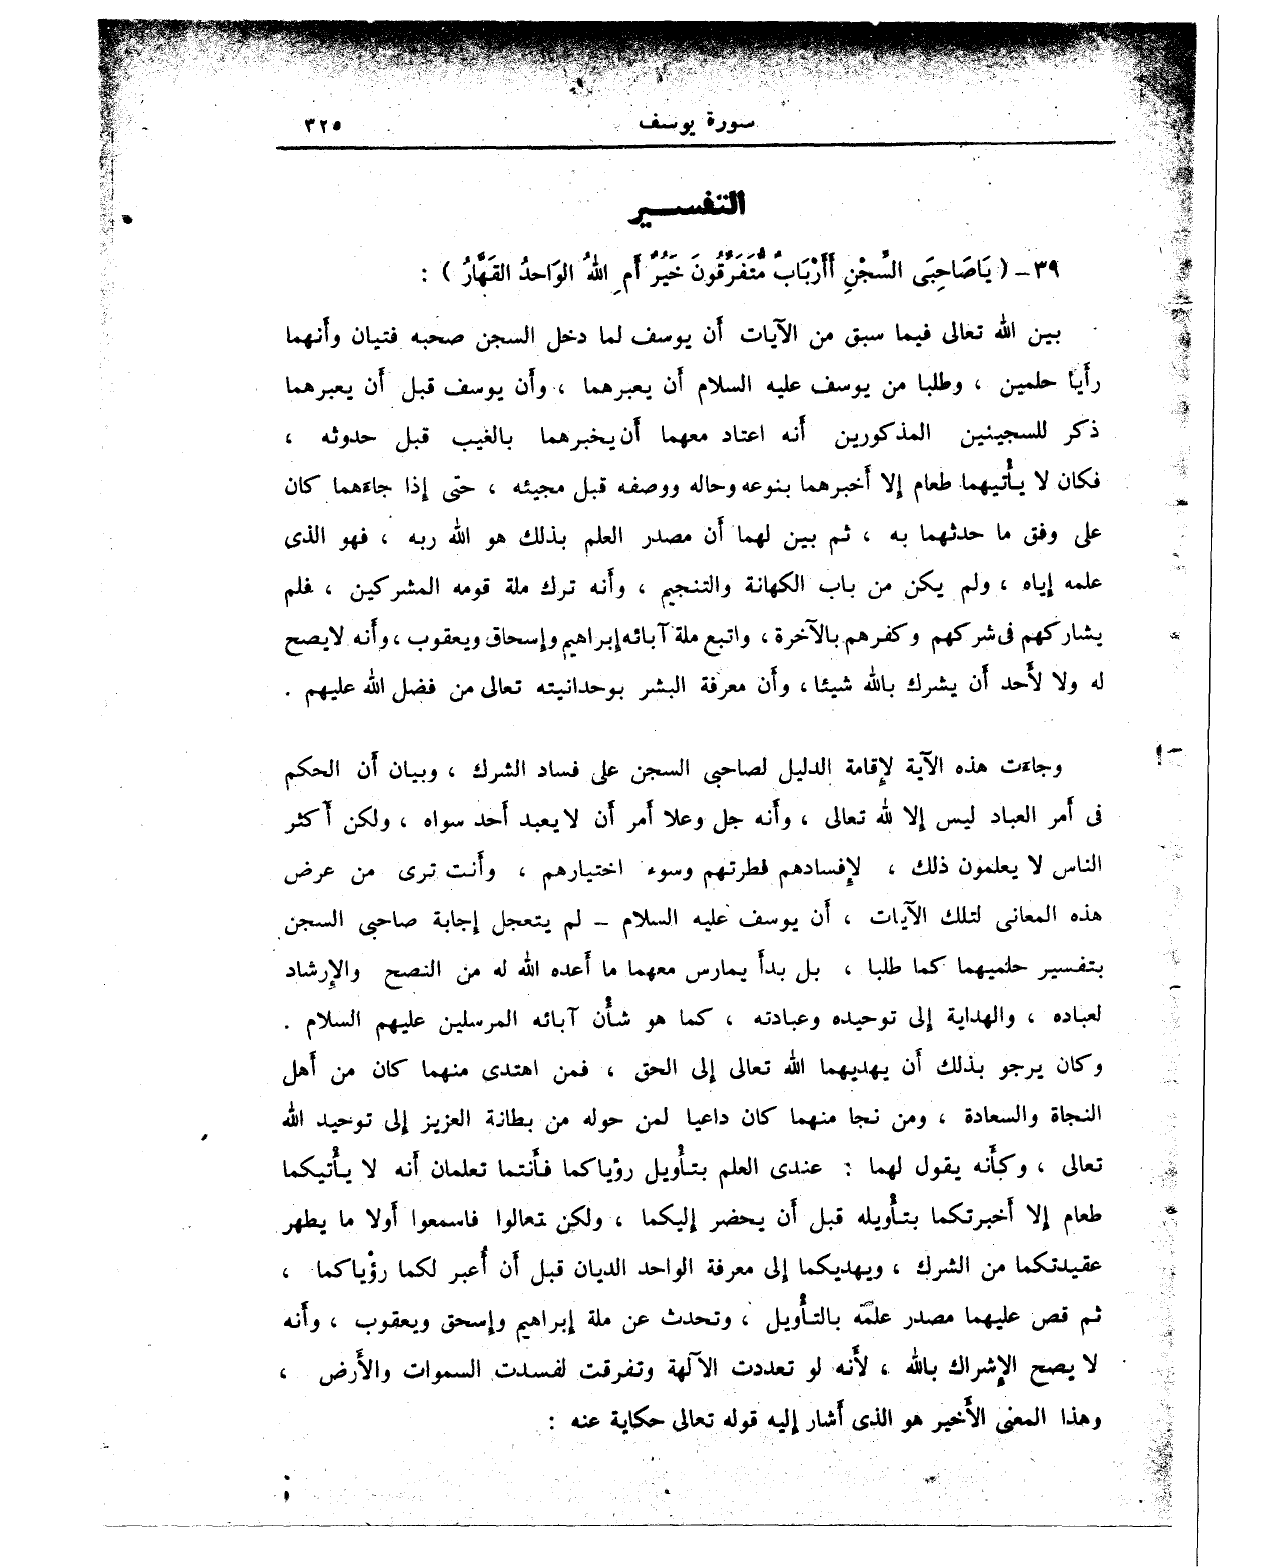 سورة يوسف ٣٢٥
التفسير
٣٩ـ ( يَاصَاحِبَى السِّجْنِ أَأَرْبَابٌ مُّتَفَرِّقُونَ خَيْرٌ أَمِ اللهُ الوَاحدُ القَهَّارُ ) :
بين الله تعالى فيما سبق من الآيات أن يوسف لما دخل السجن صحبه فتيان وأنهما
رأيا حلمين ، وطلبا من يوسف عليه السلام أن يعبرهما ، وأن يوسف قبل أن يعبرهما
ذكر للسجينين المذكورين أنه اعتاد معهما أن يخبرهما بالغيب قبل حدوثه ،
فكان لا يأْتيهما طعام إلا أخبرهما بنوعه وحاله ووصفه قبل مجيئه ، حتى إذا جاءهما كان
على وفق ما حدثهما به ، ثم بين لهما أن مصدر العلم بذلك هو الله ربه ، فهو الذى
علمه إياه ، ولم يكن من باب الكهانة والتنجيم ، وأنه ترك ملة قومه المشركين ، فلم
يشاركهم فى شركهم وكفرهم بالآخرة ، واتبع ملة آبائه إبراهيم وإسحاق ويعقوب ، وأنه لايصح
له ولا لأحد أن يشرك بالله شيئا ، وأن معرفة البشر بوحدانيته تعالى من فضل الله عليهم .
وجاءت هذه الآية لإقامة الدليل لصاحبى السجن على فساد الشرك ، وبيان أن الحكم
فى أمر العباد ليس إلا لله تعالى ، وأنه جل وعلا أمر أن لا يعبد أحد سواه ، ولكن أكثر
الناس لا يعلمون ذلك ، لإفسادهم فطرتهم وسوء اختيارهم ، وأنت ترى من عرض
هذه المعانى لتلك الآيات ، أن يوسف عليه السلام ـ لم يتعجل إجابة صاحبى السجن
بتفسير حلميهما كما طلبا ، بل بدأ يمارس معهما ما أعده الله له من النصح والإرشاد
لعباده ، والهداية إلى توحيده وعبادته ، كما هو شأْن آبائه المرسلين عليهم السلام .
وكان يرجو بذلك أن يهديهما الله تعالى إلى الحق ، فمن اهتدى منهما كان من أهل
النجاة والسعادة ، ومن نجا منهما كان داعيا لمن حوله من بطانة العزيز إلى توحيد الله
تعالى ، وكأنه يقول لهما : عندى العلم بتأْويل رؤياكما فأنتما تعلمان أنه لا يأْتيكما
طعام إلا أخبرتكما بتأْويله قبل أن يحضر إليكما ، ولكن تعالوا فاسمعوا أولا ما يطهر
عقيدتكما من الشرك ، ويهديكما إلى معرفة الواحد الديان قبل أن أُعبر لكما رؤْياكما ،
ثم قص عليهما مصدر علمه بالتأْويل ، وتحدث عن ملة إبراهيم وإسحق ويعقوب ، وأنه
لا يصح الإشراك بالله ، لأنه لو تعددت الآلهة وتفرقت لفسدت السموات والأرض ،
وهذا المعنى الأخير هو الذى أشار إليه قوله تعالى حكاية عنه :